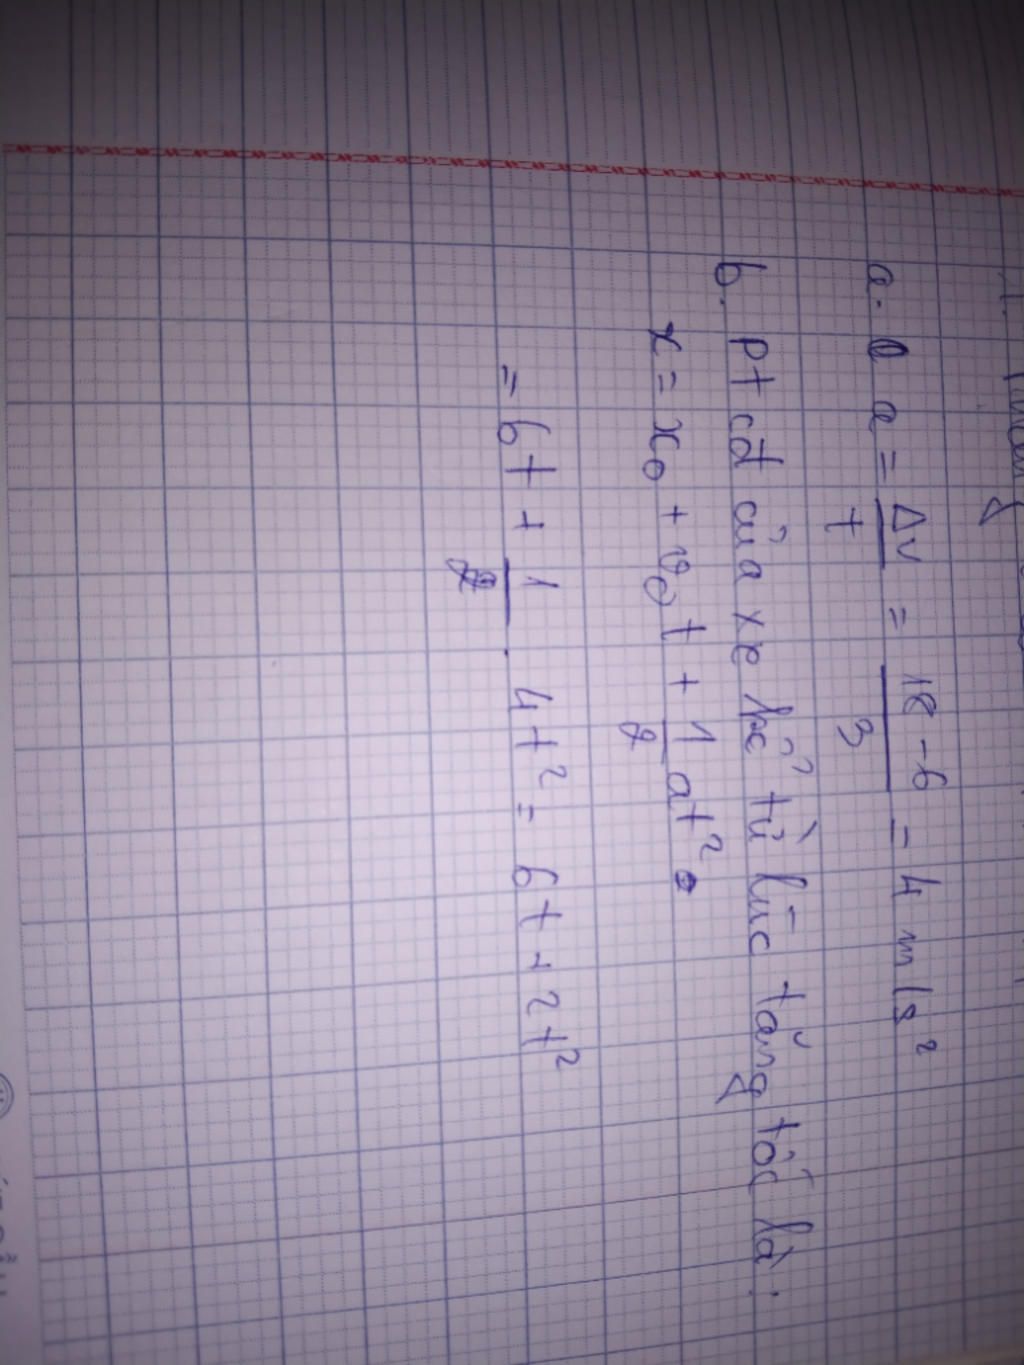 a. a = Δv/t = 18-6/3 = 4 m/s²
b. pt cđ của xe kể từ lúc tăng tốc là:
x = x₀ + v₀t + 1/2 at².
= 6t + 1/2 . 4t² = 6t + 2t²